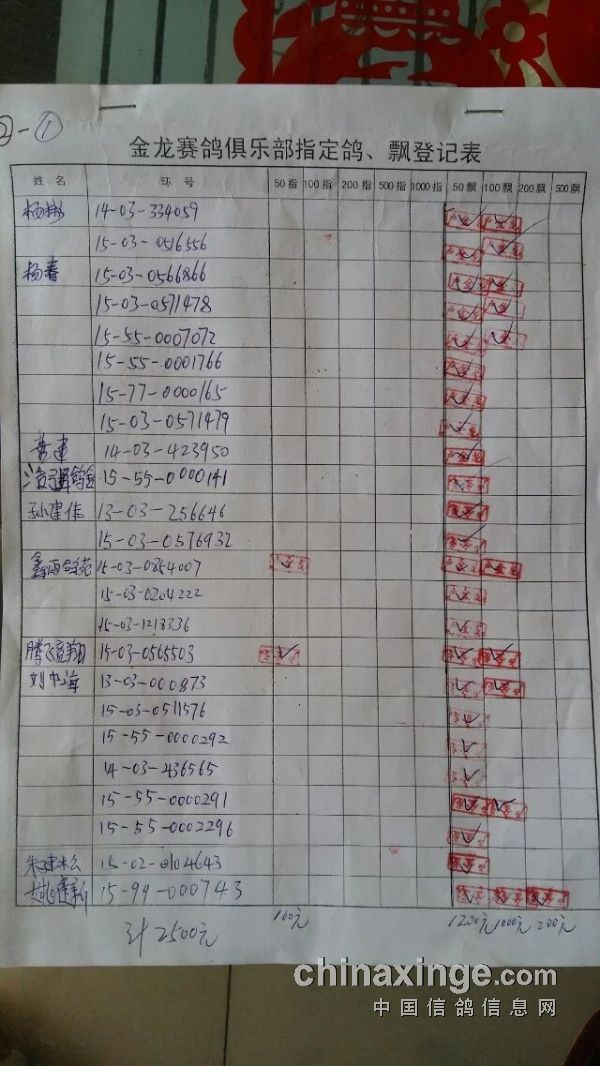 ②-①
金龙赛鸽俱乐部指定鸽、飘登记表
姓名 环号 50指 100指 200指 500指 1000指 50飘 100飘 200飘 500飘
14-03-334059
15-03-0516556
杨春 15-03-0566866
15-03-0571478
15-55-0007072
15-55-0001766
15-77-0000165
15-03-0571479
14-03-423950
15-55-0000141
孙建伟 13-03-256646
15-03-0576932
15-03-0854007
15-03-0204222
15-03-1218336
腾飞竞翔 15-03-0565503
刘中海 13-03-000873
15-03-0511576
15-55-0000292
14-03-436565
15-55-0000291
15-55-0002296
朱建松 15-02-0104643
姚建新 15-99-000743
计2500元 100元 1200元 1000元 200元
chinaxinge.com
中国信鸽信息网